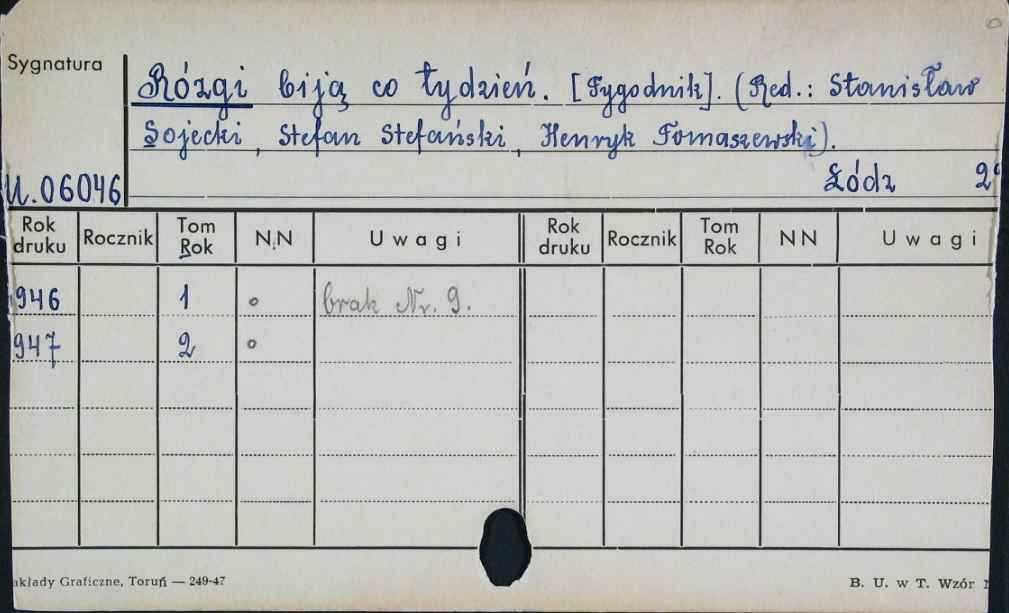 Sygnatura
Rózgi biją co tydzień. [Tygodnik]. (Red.: Stanisław
Sojecki, Stefan Stefański, Henryk Tomaszewski).
U.06046
Łódź 2°
Rok druku Rocznik Tom Rok N.N Uwagi Rok druku Rocznik Tom Rok NN Uwagi
946 1 ° brak Nr. 9.
947 2 °
akłady Graficzne, Toruń — 249-47
B. U. w T. Wzór